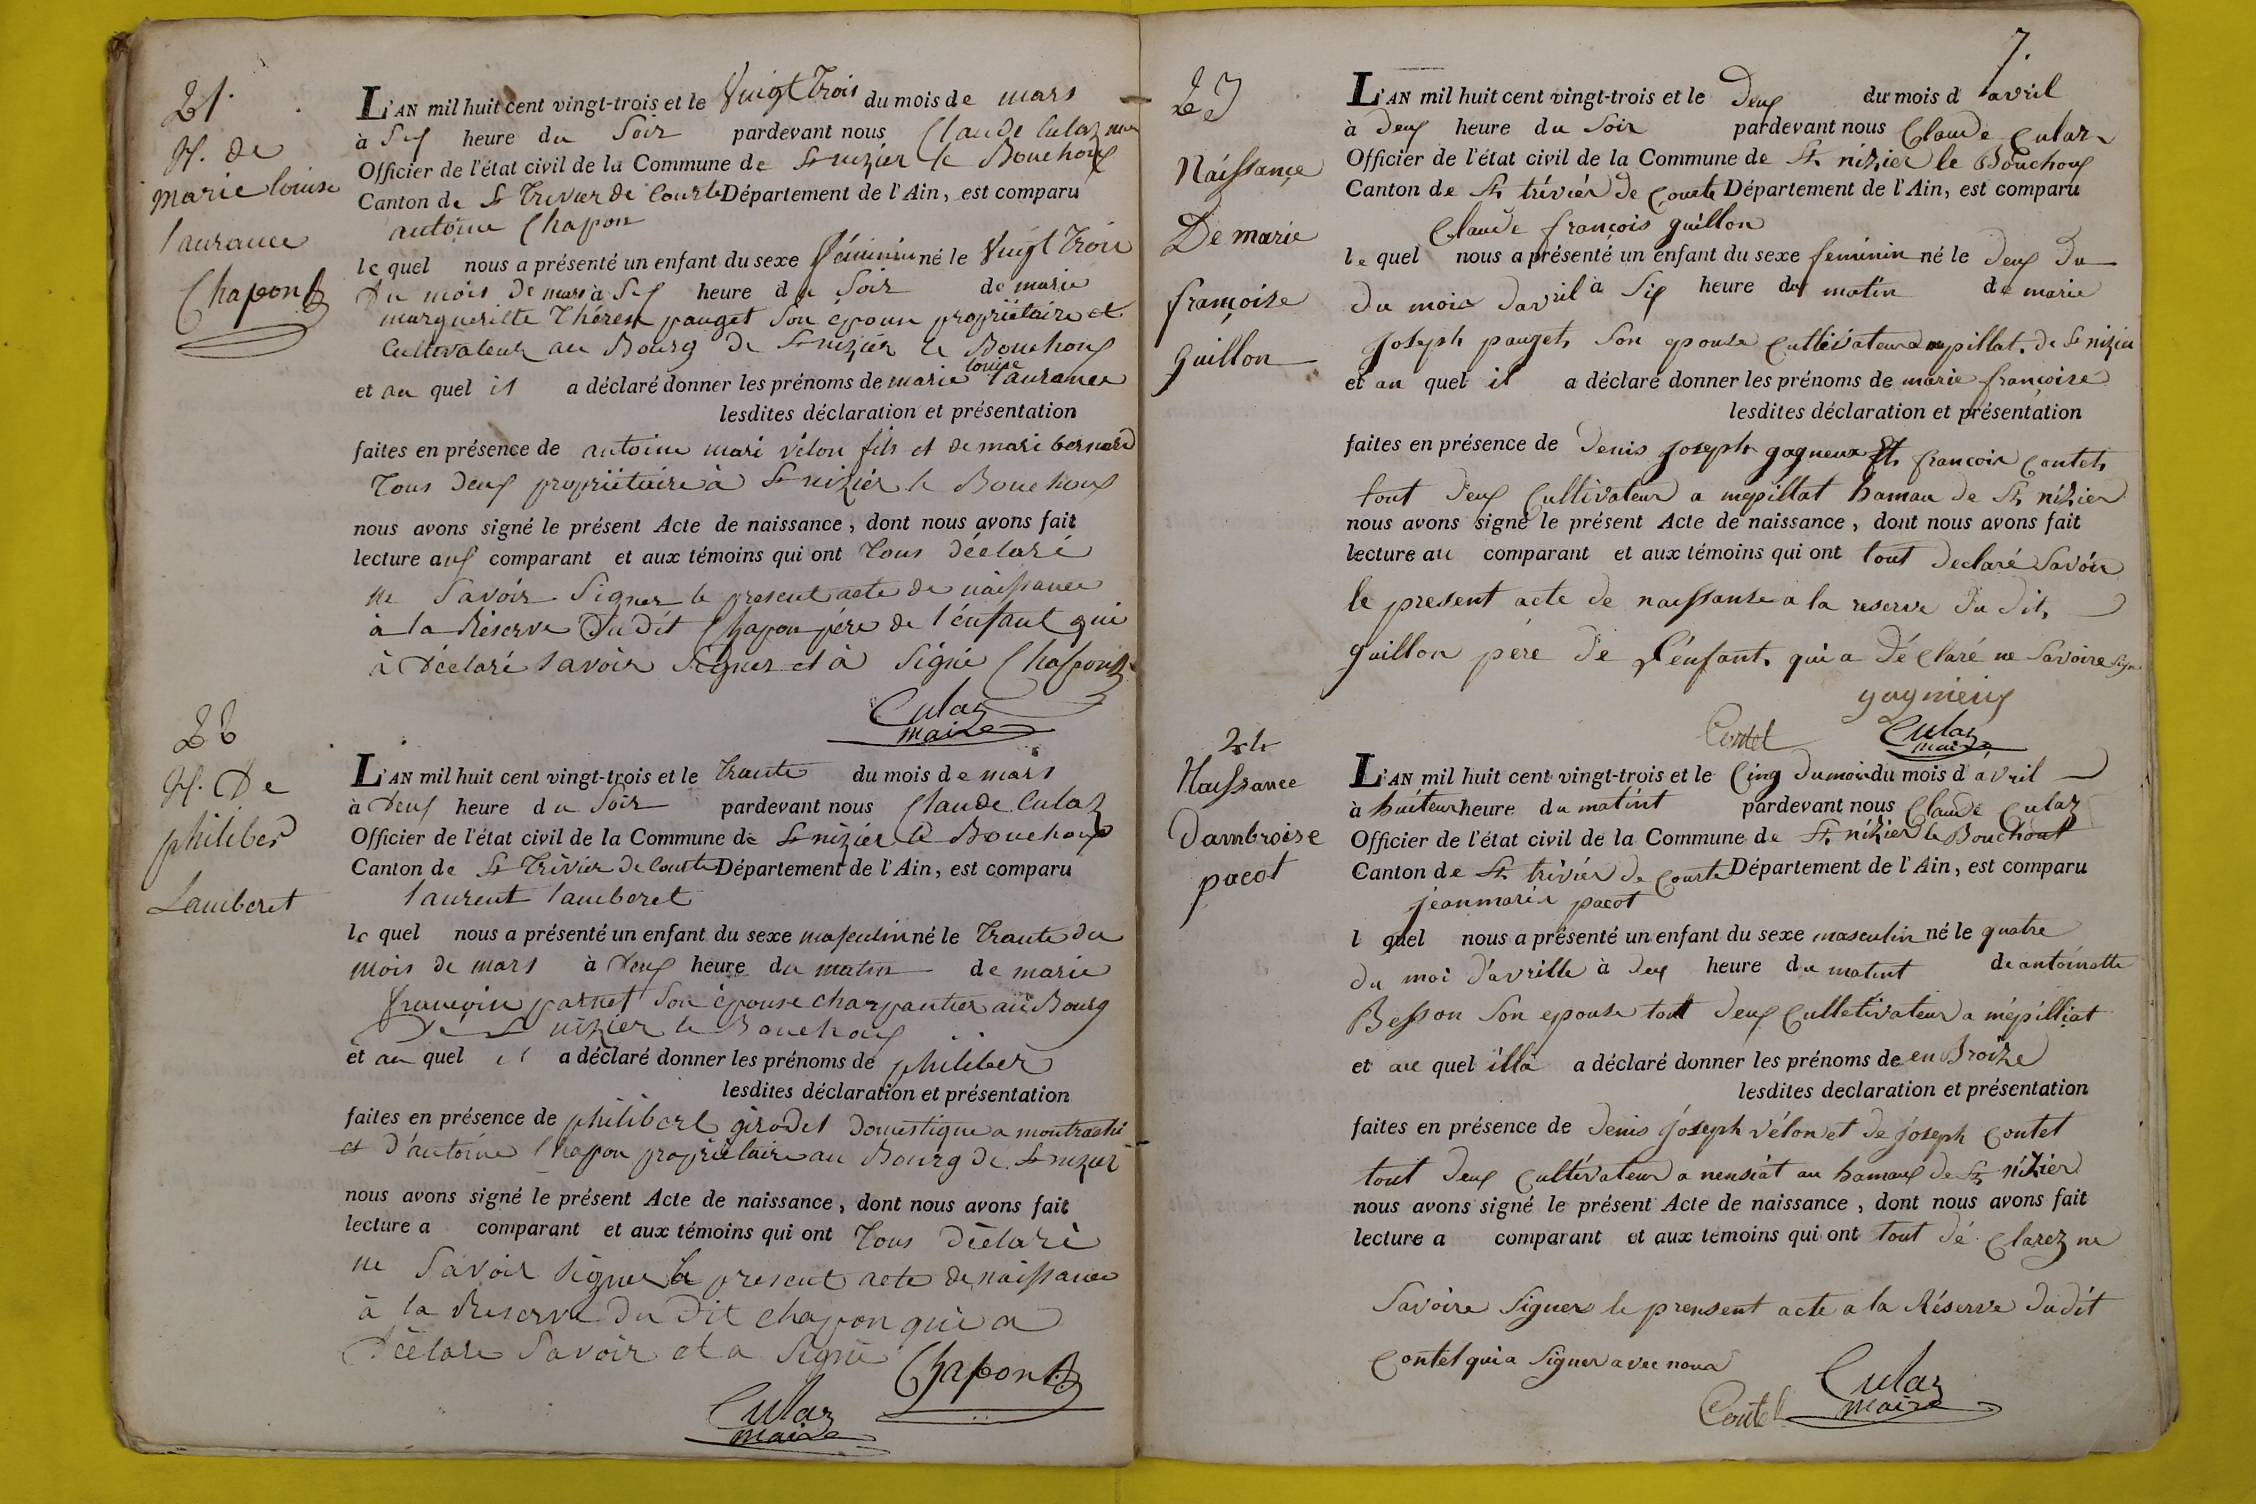 21.
N. de
marie louise
laurance
Chapon
L'AN mil huit cent vingt-trois et le vingt trois du mois de mars
à Six heure du Soir pardevant nous Claude Culaz
Officier de l'état civil de la Commune de St nizier le Bouchoux
Canton de St Trivier de Courte Département de l'Ain, est comparu
antoine Chapon
le quel nous a présenté un enfant du sexe féminin né le vingt Trois
Du mois De mars à Six heure du Soir de marie
margueritte Thérese pauget Son épouse propriëtaire et
Cultivateur au Bourg de St nizier le Bouchoux
et au quel il a déclaré donner les prénoms de marie louise laurance
lesdites déclaration et présentation
faites en présence de antoine mari vélon fils et de mari bernard
Tous Deux propriëtaire à St nizier le Bouchoux
nous avons signé le présent Acte de naissance, dont nous avons fait
lecture aux comparant et aux témoins qui ont Tous déclaré
ne Savoir Signer le present acte de naissance
à la Réserve Dudit Chapon père de l'énfant qui
à Déclaré Savoir Signer et à Signé Chapon
Culaz
maire
22
N. De
philiber
Lamberet
L'AN mil huit cent vingt-trois et le Trante du mois de mars
à Deux heure du Soir pardevant nous Claude Culaz
Officier de l'état civil de la Commune de St nizier le Bouchoux
Canton de St Trivier de Courte Département de l'Ain, est comparu
laurent lamberet
le quel nous a présenté un enfant du sexe masculin né le Trante du
mois de mars à Deux heure du matin de marie
françoise parnet Son épouse charpantier au Bourg
De St nizier le Bouchoux
et au quel il a déclaré donner les prénoms de philiber
lesdites déclaration et présentation
faites en présence de philibert girodet domestique a
et d'antoine Chapon propriëtaire au Bourg de St nizier
nous avons signé le présent Acte de naissance, dont nous avons fait
lecture a comparant et aux témoins qui ont Tous déclaré
ne Savoir Signer le present acte de naissance
à la Reserve Du Dit chapon qui a
Déclaré Savoir et a Signé
Chapon
Culaz
maire
7.
23
Naissançe
De marie
françoise
guillon
L'AN mil huit cent vingt-trois et le Deux du mois d avril
à deux heure du Soir pardevant nous Claude Culaz
Officier de l'état civil de la Commune de St nizier le Bouchoux
Canton de St trivier de Courte Département de l'Ain, est comparu
Claude françois guillon
le quel nous a présenté un enfant du sexe feminin né le deux du
du mois davril à Six heure du matin de marie
joseph pauget Son epouse Cultivateur a mépillat de St nizier
et au quel il a déclaré donner les prénoms de marie françoise
lesdites déclaration et présentation
faites en présence de denis joseph gagneux Et françois Contet
tout deux Cultivateur a mépillat hamau de St nizier
nous avons signé le présent Acte de naissance, dont nous avons fait
lecture au comparant et aux témoins qui ont tout déclaré Savoir
le present acte de naissanse a la reserve du dit
guillon père de L'énfant qui a déclaré ne Savoire Sign
gagnieux
Contet
Culaz
maire
24
Naissance
Dambroise
pacot
L'AN mil huit cent vingt-trois et le Cinq du mois du mois d'avril
à huiteur heure du matint pardevant nous Claude Culaz
Officier de l'état civil de la Commune de St nizier le Bouchout
Canton de St trivier de Courte Département de l'Ain, est comparu
jean marie pacot
l quel nous a présenté un enfant du sexe masculin né le quatre
du moi d'avrille à deux heure du matint de antoinette
Besson Son epouse tout deux Culletivateur a mépilliat
et au quel illa a déclaré donner les prénoms de en Broize
lesdites declaration et présentation
faites en présence de denis joseph vélon et de joseph Contet
tout deux Cultivateur a nensiat au hamaux de St nizier
nous avons signé le présent Acte de naissance, dont nous avons fait
lecture a comparant et aux témoins qui ont tout dé Clarez ne
Savoire Signer le prensent acte a la Réserve dudit
Contet qui a Signer avec nous
Contet
Culaz
maire